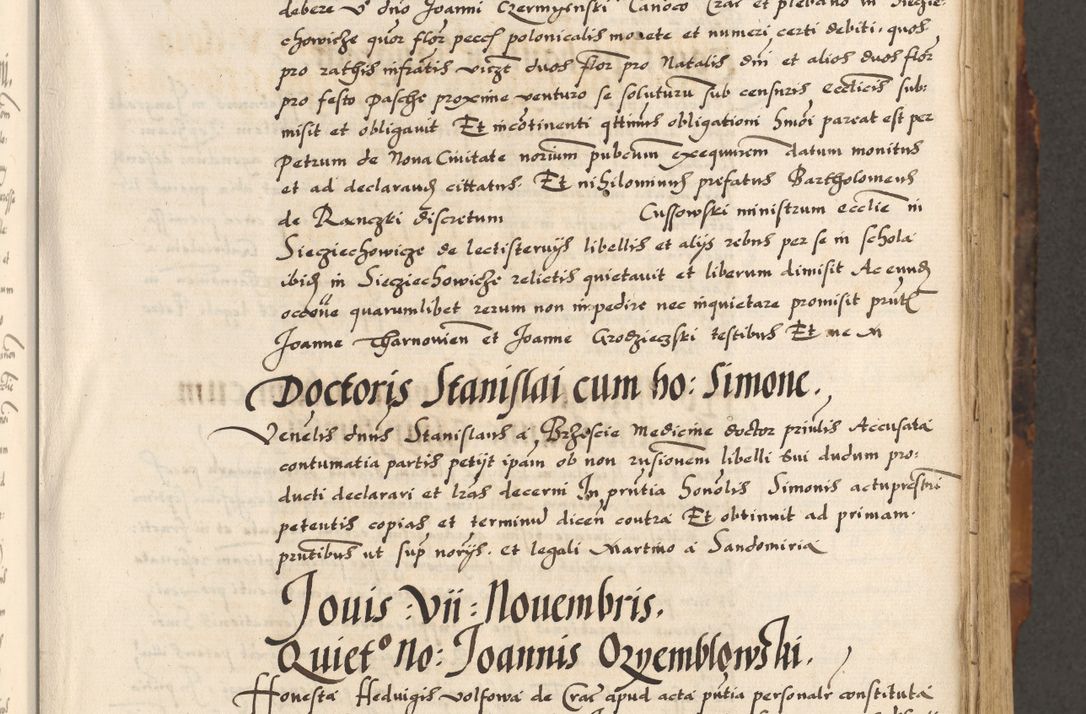 debere v dno Joanni Czermyenski Canoco Crac et plebano in Siecie-
chowicze quor flor peccf polonicalis monete et numeri certi debiti. quos
pro rathis infratis viczt duos flor pro Natalis dni et alios duos flor
pro festo Pasche proxime venturo se soluturu sub censuris ecclicis sub:
misit et obligavit Et incotinenti qttinus obligationi hmoi pareat est per
Petrum de Nova Civitate norium pubcum exequutem datum monitus
et ad declarand cittatus. Et nihilominus prefatus Bartholomeus
de Ranczki discretum Cussowski ministrum ecclie in
Siecziechowicze de lectisternijs libellis et alijs rebus per se in schola
ibid in Siecziechowicze relictis quietavit et liberum dimisit Ac eund
occoue quarumlibet rerum non impedire nec inquietare promisit prntc
Joanne Tharnowien et Joanne Grodzieczski testibus Et me M
Doctoris Stanislai cum ho: Simone.
Venelis dnus Stanislaus a Brzescie Medicine doctor priulis Accusata
contumatia partis petijt ipam ob non rusionem libelli sui dudum pro:
ducti declarari et lras decerni In prntia honolis Simonis actuprestri
petentis copias et terminu dicen contra Et obtinuit ad primam.
prntibus ut sup norijs. et legali Martino a Sandomiria
Jouis : vii : Nouembris.
Quieto No: Joannis Ozyemblowski.
Honesta Hedvigis volfowa de Crac apud acta pntia personalr constituta